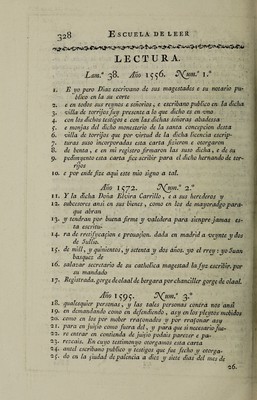 328 ESCUELA DE LEER
LECTURA.
Lam.ª 38. Año 1556. Num.º 1.º
1. E yo pero Dias escrivano de sus magestades e su notario pu-
blico en la su corte
2. e en todos sus reynos e señorios, e escribano publico en la dicha
3. villa de torrijos fuy presente a lo que dicho es en vno
4. con los dichos testigos e con las dichas señoras abadessa
5. e monjas del dicho monesterio de la santa concepcion desta
6. villa de torrijos que por virtud de la dicha licencia escrip-
7. turas suso incorporadas esta carta ficieron e otorgaron
8. de benta, e en mi registro firmaron las suso dicha, e de su
9. pedimyento esta carta fice escribir para el dicho hernando de tor-
rijos
10. e por ende fize aqui este mio signo a tal.
Año 1572. Num.º 2.º
11. Y la dicha Doña Elvira Carrillo, e a sus herederos y
12. subcesores ansi en sus bienes, como en los de mayoradgo para-
que obran
13. y tendran por buena firme y valedera para sienpre jamas es-
ta escritu-
14. ra de retificacion e prouacion. dada en madrid a veynte y dos
de Jullio.
15. de mill, y quinientos, y setenta y dos años. yo el rrey: yo Suan
basques de
16. salazar secretario de su catholica magestad la fyz escribir por
su mandado
17. Registrada. gorge de olaal de bergara por chanciller gorge de olaal.
Año 1595. Num.º 3.º
18. qualesquier personas, y las tales personas contra nos ansi
19. en demandando como en defendiendo, asy en los pleytos mobidos
20. como en los por mober rraçonados y por rraçonar asy
21. para en juiçio como fuera del, y para que si necesario fue-
22. re entrar en contienda de juiçio podais parecer e pa-
23. rezcais. En cuyo testimonyo otorgamos esta carta
24. antel escribano publico y testigos que fue fecho y otorga-
25. do en la çiudad de palencia a diez y siete dias del mes de
26.